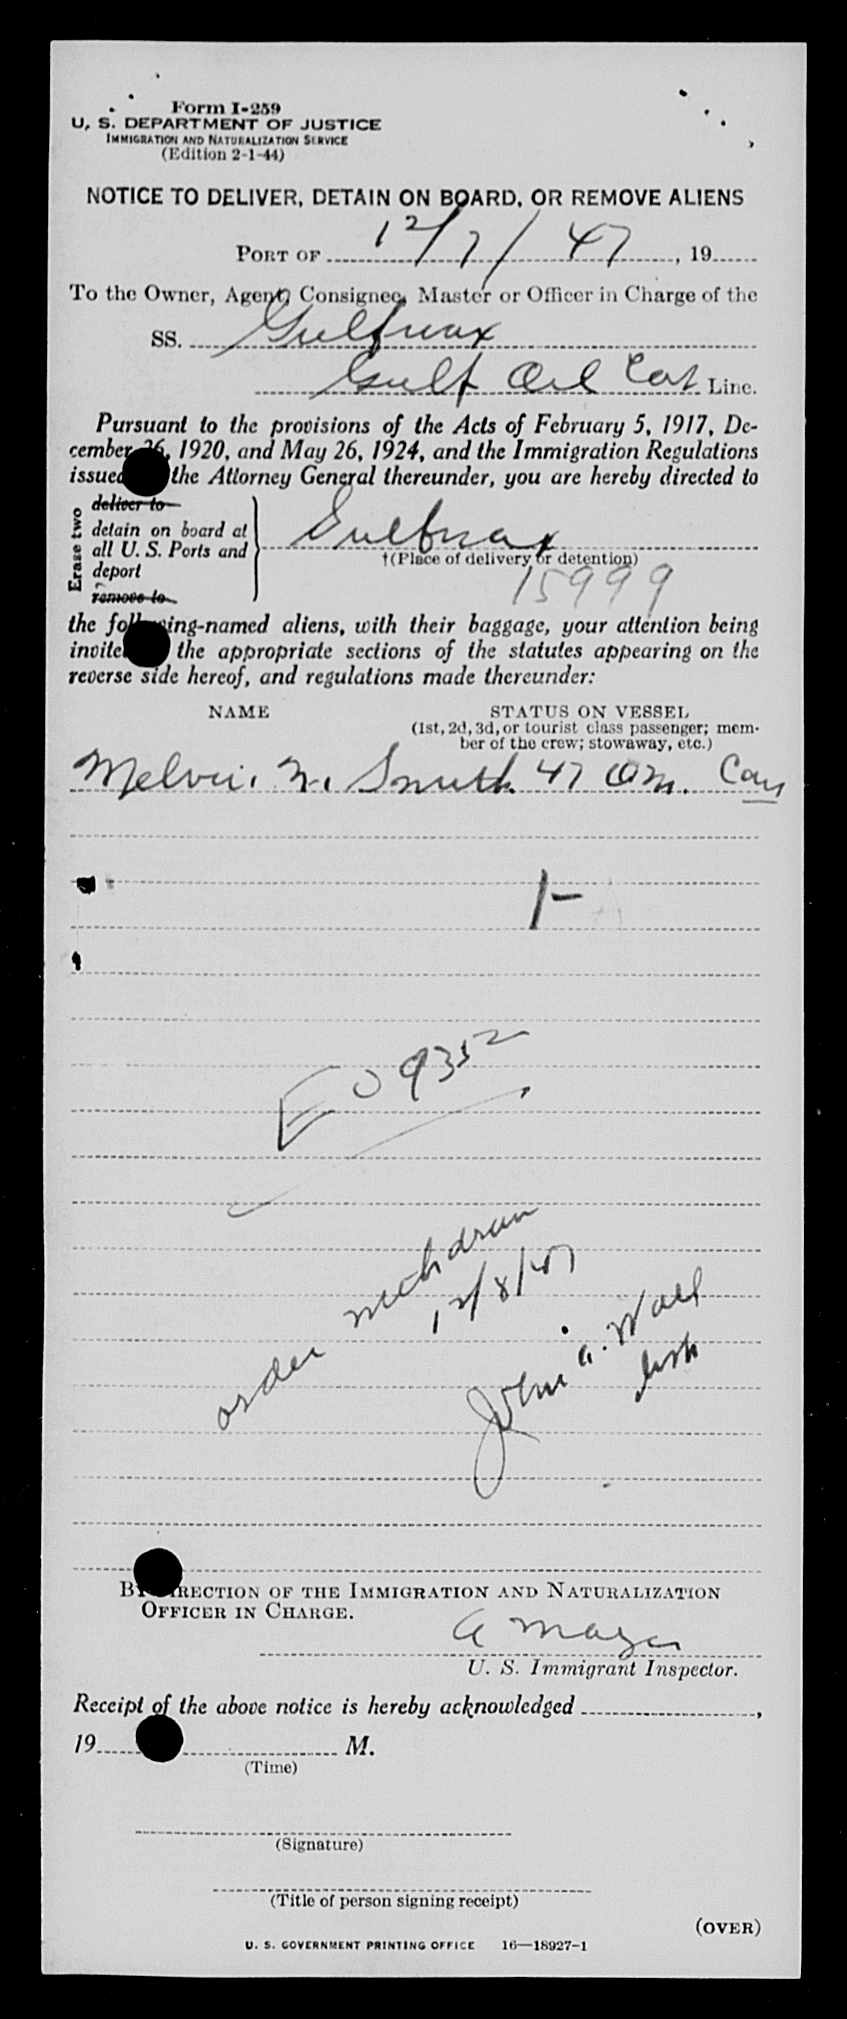 Form I-259
U. S. DEPARTMENT OF JUSTICE
IMMIGRATION AND NATURALIZATION SERVICE
(Edition 2-1-44)
NOTICE TO DELIVER, DETAIN ON BOARD, OR REMOVE ALIENS
PORT OF 12/7/47, 19
To the Owner, Agent, Consignee, Master or Officer in Charge of the
SS. Gulfwax
Gulf Oil Line.
Pursuant to the provisions of the Acts of February 5, 1917, De-
cember 26, 1920, and May 26, 1924, and the Immigration Regulations
issued the Attorney General thereunder, you are hereby directed to
Erase two
deliver to
detain on board at
all U. S. Ports and
deport
remove to
Gulfwax
†(Place of delivery or detention)
15999
the following-named aliens, with their baggage, your attention being
invited the appropriate sections of the statutes appearing on the
reverse side hereof, and regulations made thereunder:
NAME STATUS ON VESSEL
(1st, 2d, 3d, or tourist class passenger; mem-
ber of the crew; stowaway, etc.)
Melvin N. Smith 47 Can
1-
EO 9352
order withdrawn
12/8/47
John A. Wall
BY DIRECTION OF THE IMMIGRATION AND NATURALIZATION
OFFICER IN CHARGE.
A Mayer
U. S. Immigrant Inspector.
Receipt of the above notice is hereby acknowledged ,
19 M.
(Time)
(Signature)
(Title of person signing receipt)
(OVER)
U. S. GOVERNMENT PRINTING OFFICE 16—18927-1